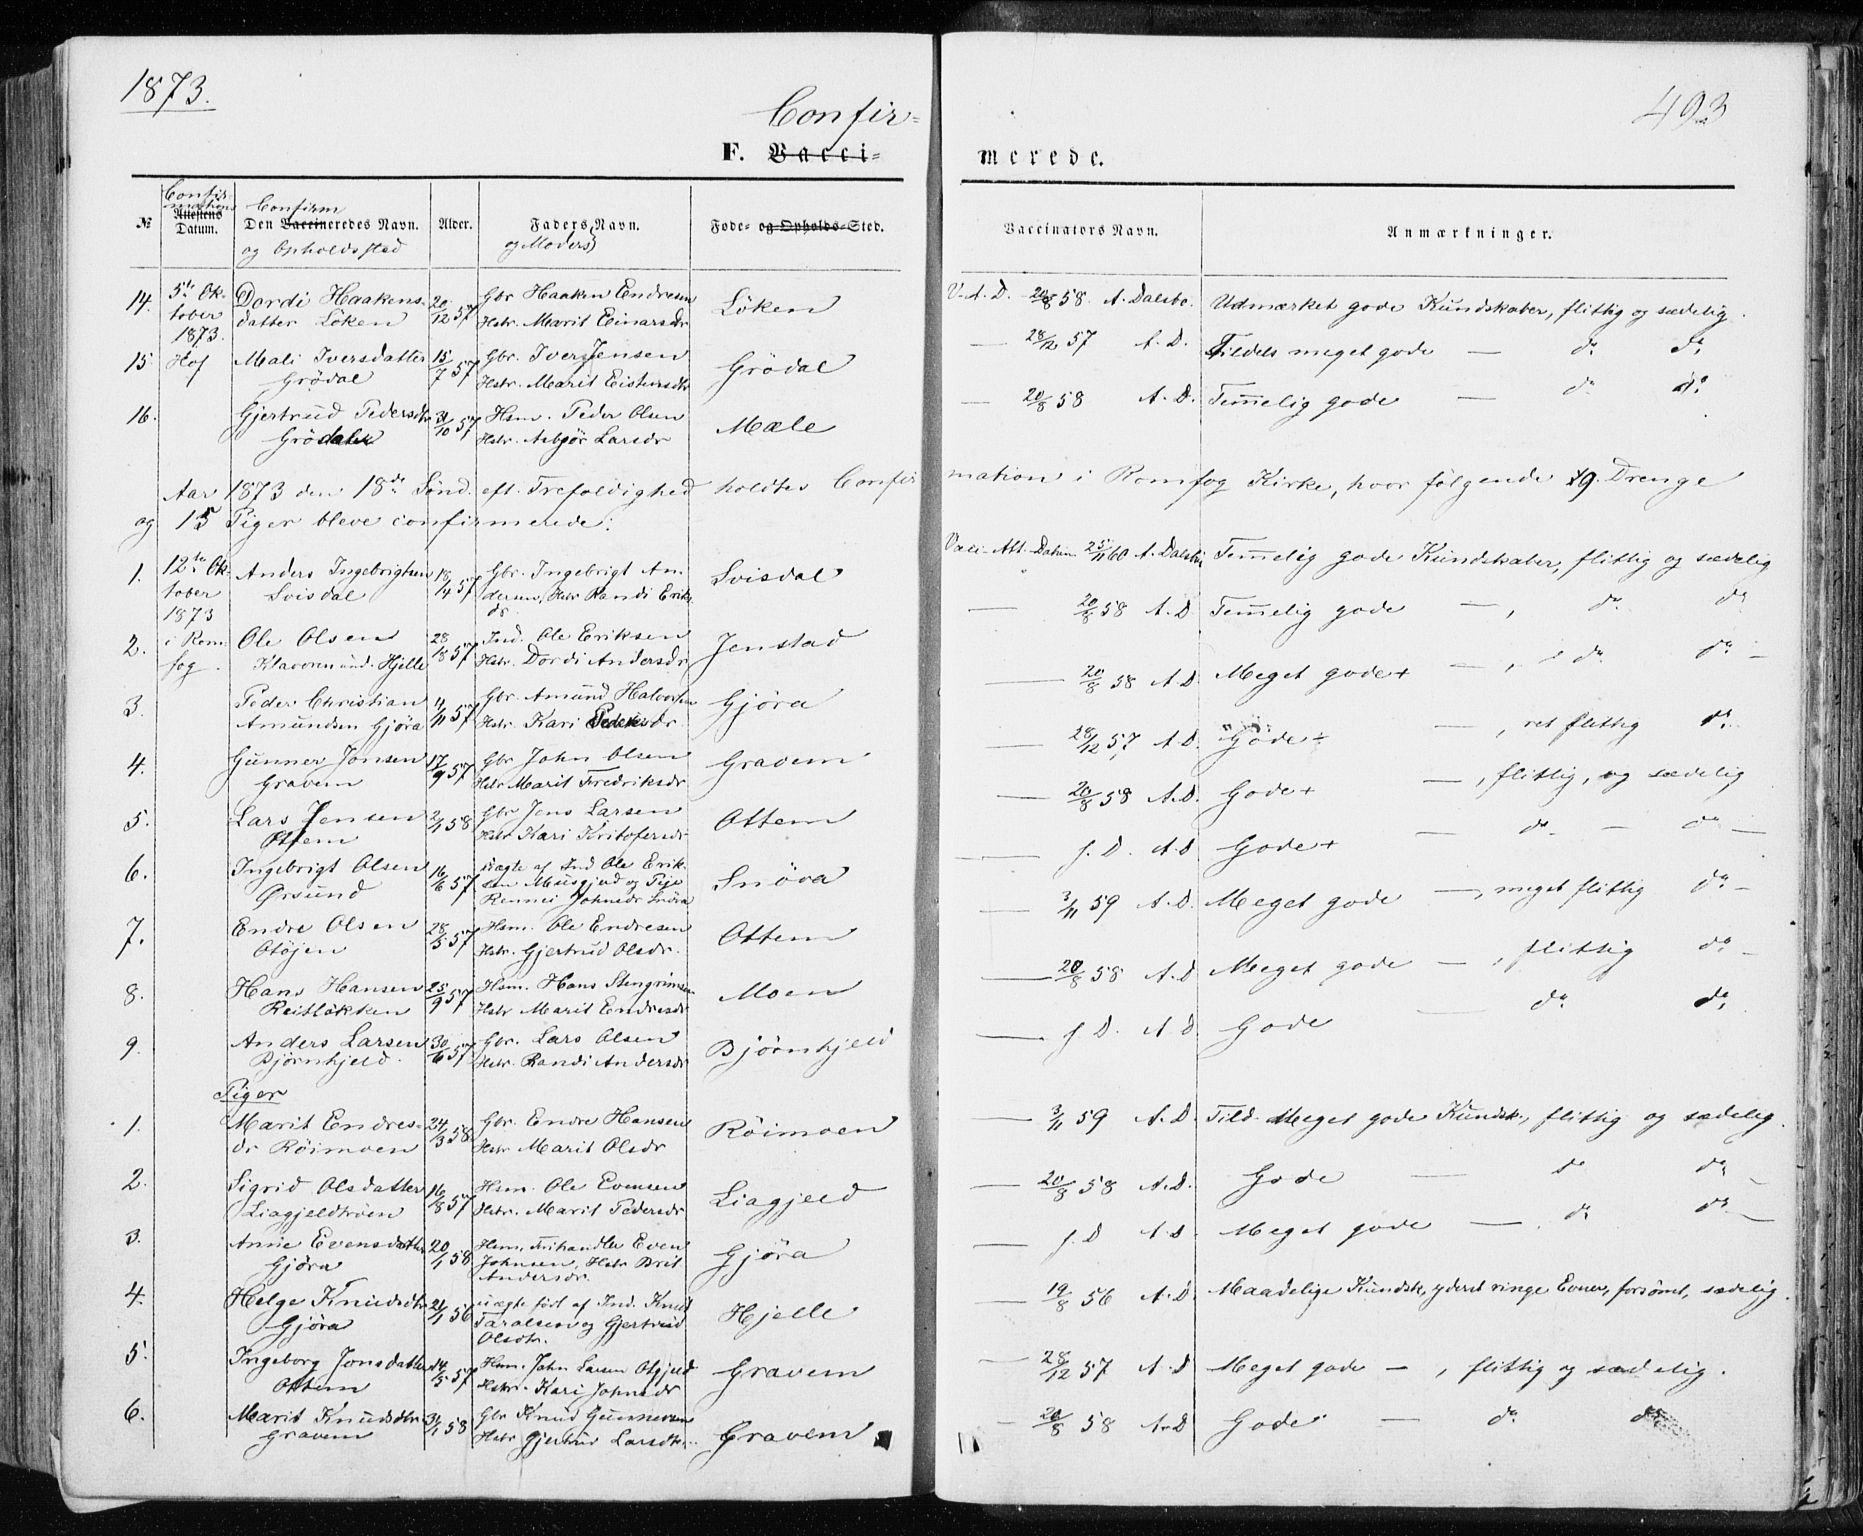 1873.
493
Confir-
F. Vacci-
merede.
Confir-
mations
Confirm
No
Attestens
Datum.
Den Vaccineredes Navn.
og Opholdssted
Alder.
Faders Navn.
og Moders
Føde- og Opholds-Sted.
Vaccinators Navn.
Anmærkninger.
14. 5te Ok- Dordi Haakens- 20/12 57 Gbr Haaken Endresen Löken V.A.D. 20/8 58. A. Dalsbo. Udmærket gode Kundskaber, flittig og sædelig.
tober datter Löken Hstr. Marit Einarsdr
1873.
15 Hof Mali Iversdatter 15/7 57 Gbr. Iver Jensen Grödal — 28/12 57 A. D. Tildels meget gode — do do
Grödal Hstr. Marit
16. Gjertrud Pedersdtr 31/10 57 Hsm. Peder Olsen Mæle — 20/8 58 A. D. Temmelig gode — do do
Hstr. Asbjør Larsdr
Aar 1873 den 18de Sönd. eft. Trefoldighed holdtes Confir mation i Romfog Kirke, hvor følgende 9. Drenge
og 15 Piger bleve confirmerede:
1. 12te Ok- Anders Ingebrigtsen 18/4 57 Gbr. Ingebrigt An- Svisdal Vacc. Att. Datum 25/11 60 A. Dalsbo Temmelig gode Kundskaber, flittig og sædelig
tober Svisdal dersen, Hstr Randi Eriks
1873 dr
2. i Rom- Ole Olsen 28/8 57 Ind. Ole Eriksen Jenstad — 20/8 58 A. D Temmelig gode —, do do
fog. Hjelle Hstr. Dordi Andersdr
3. Peder Christian 11/11 57 Gbr. Amund Halvorsen Gjøra — 20/8 58 A. D. Meget gode+ —, do do —
Amundsen Gjöra Hstr Kari Pedersdr.
4. Gunner Jonsen 17/9 57 Gbr John Olsen Gravem — 28/12 57, A. D. Gode+ —, ret flittig do
Gravem Hstr Marit Fredriksdr
5. Lars Jensen 2/1 58 Gbr Jens Larsen Ottem — 20/8 58 A. D. Gode+ —, flittig, og sædelig
Ottem Hstr Kari Kristofersdr
6. Ingebrigt Olsen 16/6 57 uægte af Ind. Ole Erik- Snöva — f. D. A. D Gode+ — do — do —
Ørsund sen Musgjerd og Pige
Rennei Johnsdr Snöva
7. Endre Olsen 28/5 57 Hsm. Ole Endresen Ottem — 3/11 59 A. D. Meget gode —, meget flittig do —
Otöjen Hstr. Gjertrud Olsdr.
8. Hans Hansen 25/9 57 Hsm. Hans Stengrimsen Moen — 20/8 58 A. D Meget gode —, flittig do —
Reitlökken Hstr Marit Endresdr
9. Anders Larsen 30/6 57 Gbr. Lars Olsen Bjørnhjeld — f. D. A. D Gode — do do
Bjørnhjeld. Hstr. Randi Andersdr
Piger
1. Marit Endres- 24/3 58 Gbr. Endre Hansen Röimoen — 3/11 59 A. D. Tild. Meget gode Kundsk., flittig og sædelig.
dr Röimoen Hstr Marit Olsdr
2. Sigrid Olsdatter 16/8 57 Hsm. Ole Evensen Liagjeld — 20/8 58 A. D. Gode — do do
Liagjeldtröen Hstr. Marit Pedersdr
3. Anne Evensdatter 20/1 58 Hsm. Even Gjöra — f. D A. D Meget gode — do do —
Gjöra Johnsen, Hstr Brit
Andersdr.
4. Helge Knudsdtr 21/1 56 uægte föst af Ind. Knud Hjelle — 19/8 56 A. D. Maadelige Kundsk., yderst ringe Evner, forsömt, sædelig.
Gjöra Taralsen og Gjertrud
Olsdtr.
5. Ingeborg Jonsdatter 14/5 57 Hsm. John Larsen Otgjeld Gravem — 28/12 57 A. D Meget gode —, flittig og sædelig.
Ottem Hstr. Kari Johnsdr
6. Marit Knudsdtr 31/1 58 Gbr Knud Gunnersen Gravem — 20/8 58 A. D Gode — do do
Gravem Hstr Gjertrud Larsdtr.